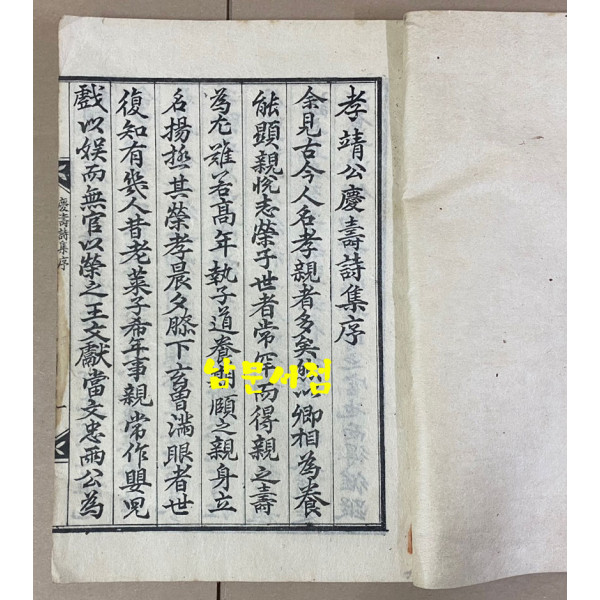 孝靖公慶壽詩集序
余見古今人名孝親者多矣能以卿相為養
能顯親悅志榮于世者常罕而得親之壽
為尤難若高年執子道養期頤之親身立
名揚極其榮孝晨夕膝下玄曾滿眼者世
復知有幾人昔老萊子希年事親常作嬰兒
戲以娛而無官以榮之王文獻當文忠兩公為
慶壽詩集序
一
남문서점